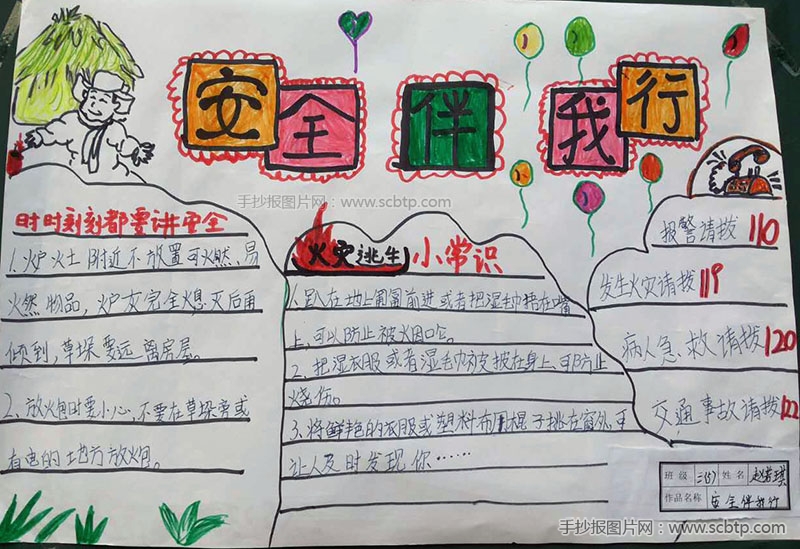 安全伴我行
手抄报图片网：www.scbtp.com
时时刻刻都要讲安全
1.炉灶附近不放置可燃、易
燃物品，炉灰完全熄灭后再
倾到，草垛要远离房屋。
2、放炮时要小心，不要在草垛旁或
有电的地方放炮。
火灾逃生小常识
1.趴在地上匍匐前进或者把湿毛巾捂在嘴
上,可以防止被烟呛。
2、把湿衣服或者湿毛巾被披在身上,可防止
烧伤。
3.将鲜艳的衣服或塑料布用棍子挑在窗外,可
让人及时发现你……
报警请拨 110
发生火灾请拨119
病人急救请拨120
交通事故请拨122
班级 三(5) 姓名 赵若琪
作品名称 安全伴我行
手抄报图片网：www.scbtp.com